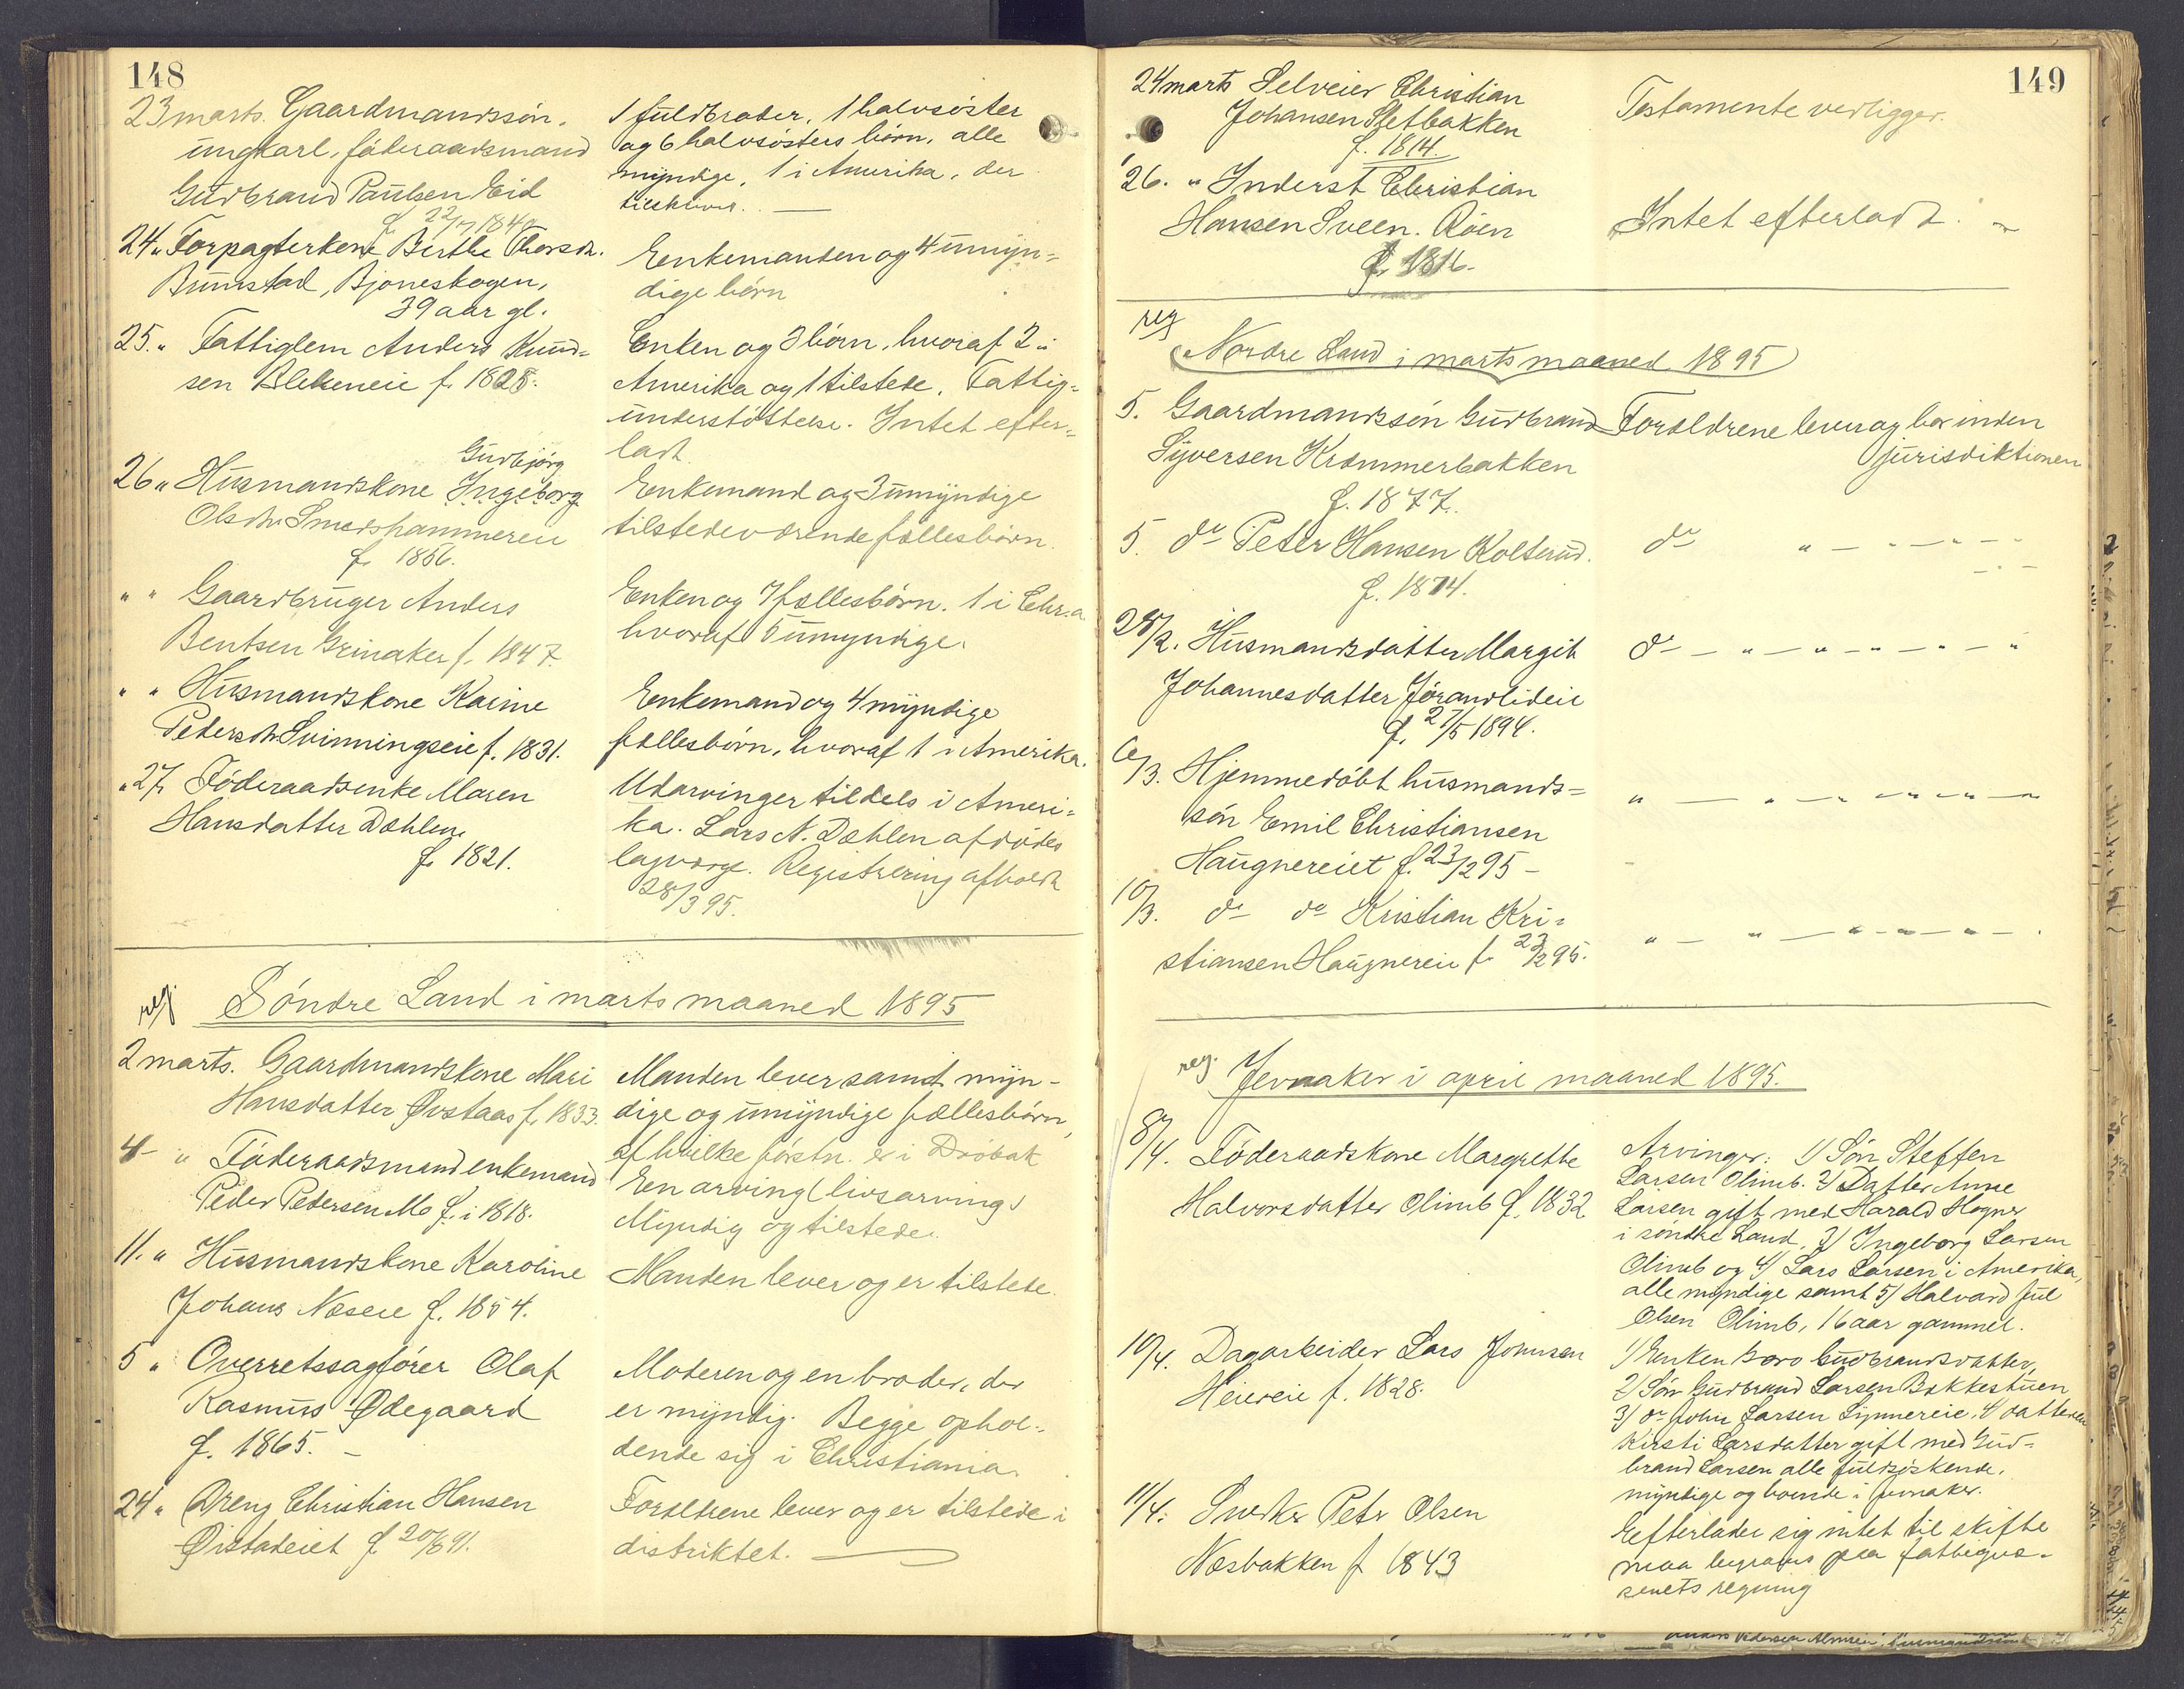 148
23 marts. Gaardmandssøn,
ungkarl, föderaadsmand
Gudbrand Paulsen Eid
f. 22/7 1849
1 fuldbroder, 1 halvsöster
og 6 halvsösters börn, alle
myndige, 1 i Amerika, der
24 " Forpagterkone Berthe Thorsdr.
Bunstad, Bjoneskogen,
39 aar gl.
Enkemanden og 4 umyn=
dige börn
25. " Fattiglem Anders Knud=
sen Blekeneie f. 1828.
Enken og 3 börn, hvoraf 2 i
Amerika og 1 tilstede. Fattig=
understöttelse. Intet efter=
ladt.
Gudbjörg
26 " Husmandskone Ingeborg
Olsdtr. Smedshammereie
f. 1856.
Enkemand og 3 umyndige
tilstedeværende fællesbörn.
" " Gaardbruger Anders
Bentsen Grinaker f. 1847.
Enken og 7 fællesbörn. 1 i Chr.a
hvoraf 5 umyndige.
" " Husmandskone Karine
Pedersdtr. Svinningseie f. 1831.
Enkemand og 4 myndige
fællesbörn, hvoraf 1 i Amerika.
" 27. Föderaadsenke Maren
Hansdatter Dæhlen,
f. 1821.
Udarvinger tildels i Ameri=
ka. Lars N. Dæhlen afdödes
lagværge. Registrering afholdt
28/3 95.
reg. Söndre Land i marts maaned 1895
2 marts. Gaardmandskone Mari
Hansdatter Øvstaas f. 1833.
Manden lever samt myn-
dige og umyndige fællesbörn,
af hvilke förstn. er i Dröbak
4 - " Föderaadsmand enkemand
Peder Pedersen Mo f. i 1818.
En arving (livsarving)
Myndig og tilstede.
11. " Husmandskone Karoline
Johans Næseie f. 1854.
Manden lever og er tilstede.
5 " Overretssagförer Olaf
Rasmus Ødegaard
f. 1865. -
Moderen og en broder, der
er myndig. Begge ophol=
dende sig i Christiania.
24 " Dreng Christian Hansen
Øistadeiet f. 20/6 91.
Forældrene lever og er tilstede i
distriktet.
149
24 marts Selveier Christian
Johansen Sletbakken
f. 1814.
Testamente vedligger.
26. " Inderst Christian
Hansen Sveen. Röen
f. 1816.
Intet efterladt.
reg
Nordre Land i marts maaned 1895
5. Gaardmandssön Gudbrand
Syversen Krammerbakken
f. 1877.
Forældrene lever og bor inden
jurisdiktionen
5. do Peter Hansen Kolterud.
f. 1874.
do " - " - " - "
28/2. Husmandsdatter Margit
Johannesdatter Jörandlideie
f. 27/5 1894.
do - " - " - " - " - "
6/3. Hjemmedöbt husmands=
sön Emil Christiansen
Haugnereiet f. 23/2 95 -
" - " - " - " - " - "
10/3. do do Kristian Kri=
stiansen Haugnereie f. 23/2 95.
" - " - " - " - " -
reg. Jevnaker i april maaned 1895.
8/4. Föderaadskone Margrethe
Halvorsdatter Olimb f. 1832
Arvinger: 1) Sön Steffen
Larsen Olimb. 2) Datter Anne
Larsen gift med Harald Hogner
i söndre Land, 3) Ingeborg Larsen
Olimb og 4) Lars Larsen i Amerika,
alle myndige samt 5) Halvard Jul
Olsen Olimb, 16 aar gammel.
10/4. Dagarbeider Lars Johnsen
Heiereie f. 1828.
1) Enken Goro Gudbrandsdatter,
2) Sön Gudbrand Larsen Bakkestuen
3) do John Larsen Lynnereie, 4) datteren
Kirsti Larsdatter gift med Gud=
brand Larsen alle fuldsöskende,
myndige og boende i Jevnaker.
11/4. Snedker Peter Olsen
Næsbakken f. 1843
Efterlader sig intet til skifte
maa begraves paa fattigvæ=
senets regning